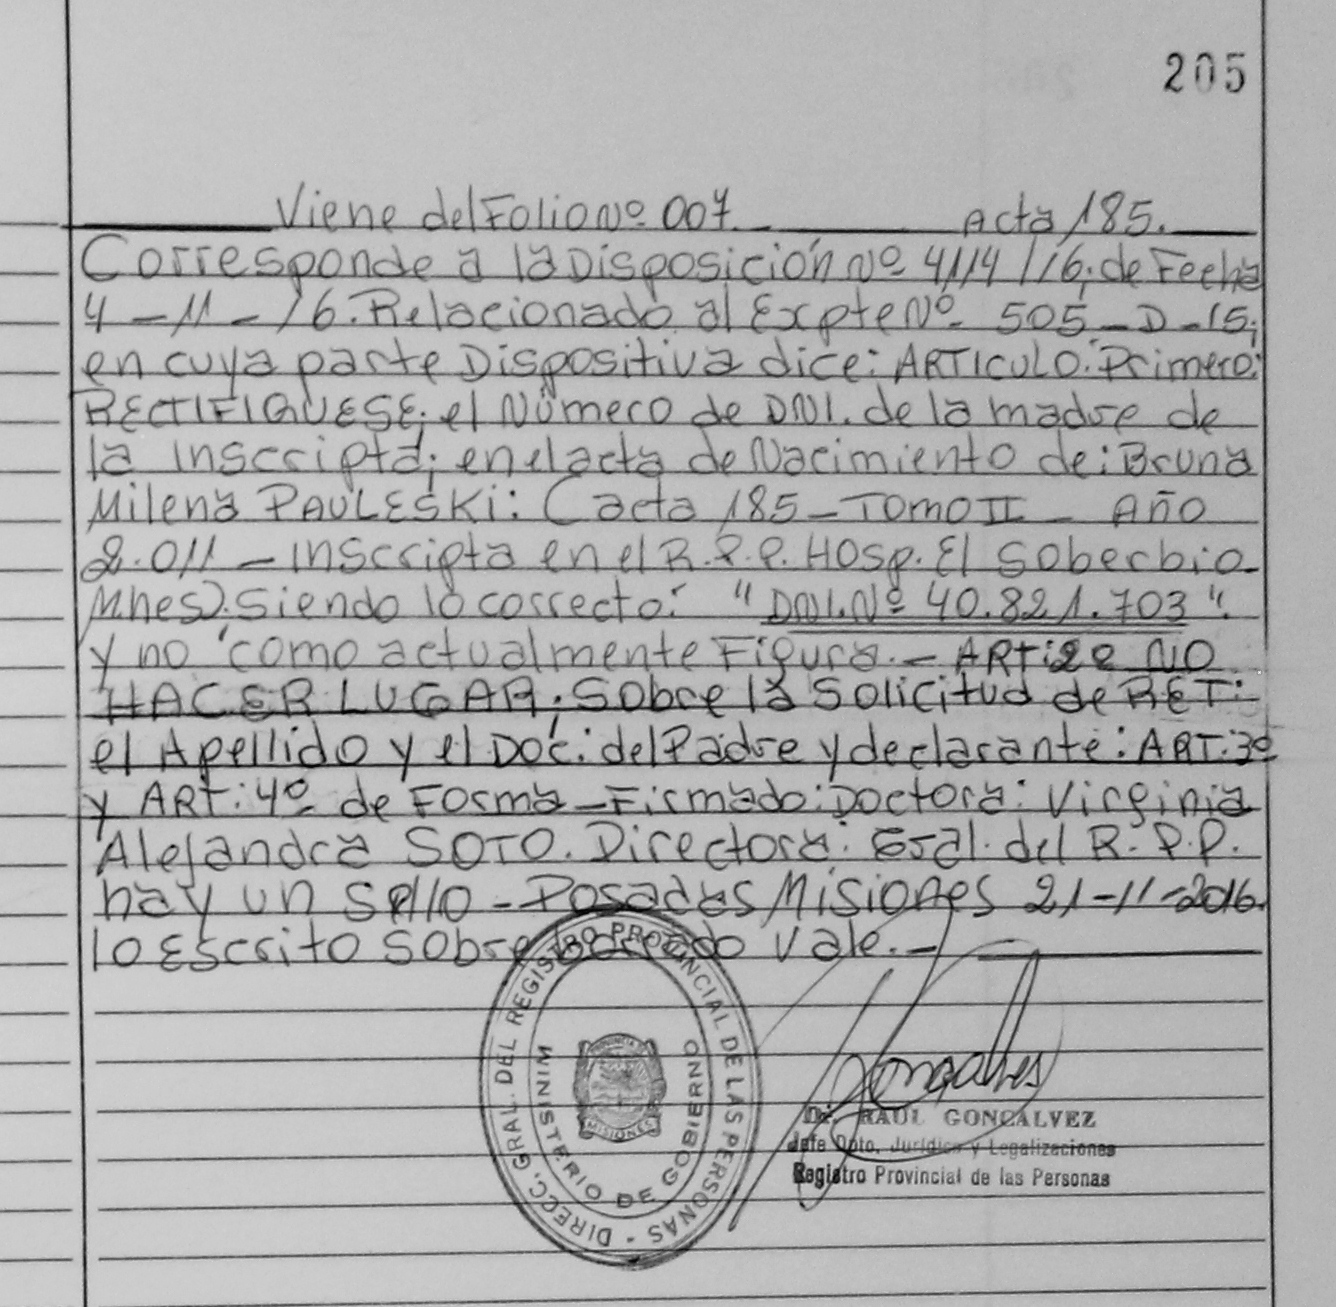 205
Viene del Folio Nº 007. Acta 185.
Corresponde a la Disposición Nº 4114/16; de Fecha
4-11-16. Relacionado al Expte Nº 505-D-15;
en cuya parte Dispositiva dice: ARTICULO: Primero:
RECTIFIQUESE; el Número de DNI. de la madre de
la Inscripta; en el acta de Nacimiento de: Bruna
Milena PAULESKI: (acta 185-TOMO II - Año
2.011 - Inscripta en el R.P.P. Hosp. El Soberbio-
Mnes). Siendo lo correcto: "DNI. Nº 40.821.703".
y no como actualmente Figura.- ART: 2º NO
HACER LUGAR; Sobre la Solicitud de RET:
el Apellido y el Doc: del Padre y declarante: ART: 3º
y ART: 4º de Forma - Firmado: Doctora: Virginia
Alejandra SOTO. Directora: Gral. del R.P.P.
hay un Sello - Posadas Misiones 21-11-2016.
lo Escrito Sobre borrado Vale.-
DIRECC. GRAL. DEL REGISTRO PROVINCIAL DE LAS PERSONAS -
MINISTERIO DE GOBIERNO
MISIONES
Dr. RAUL GONCALVEZ
Jefe Dpto. Jurídico y Legalizaciones
Registro Provincial de las Personas